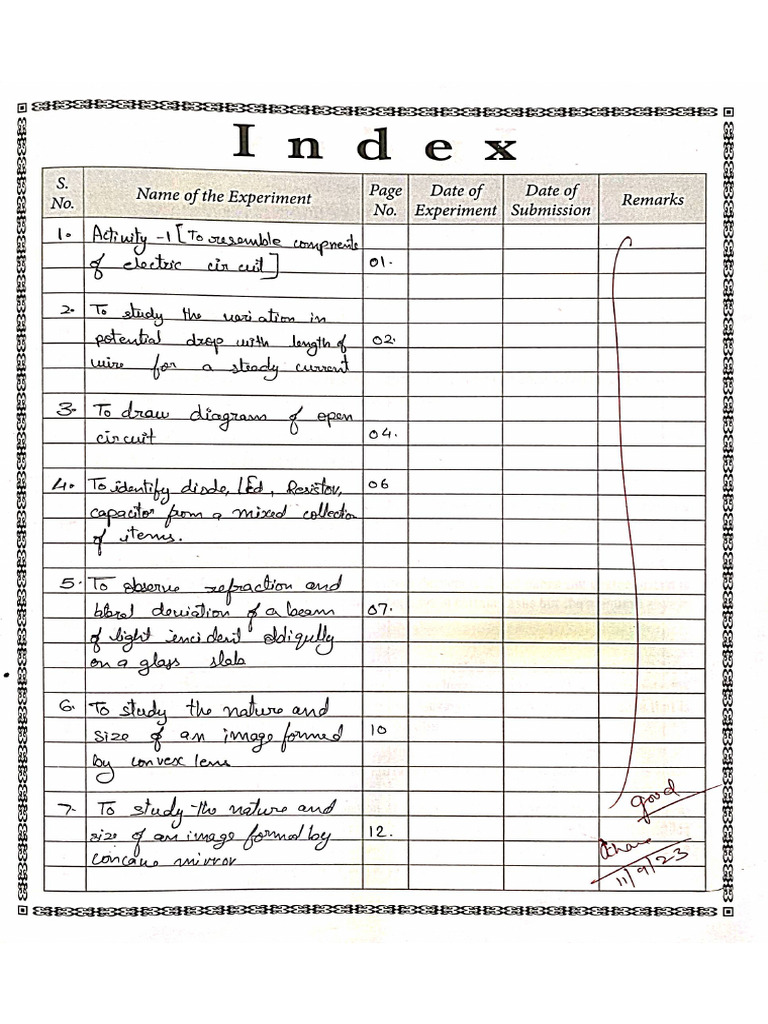 Index
S. No. Name of the Experiment Page No. Date of Experiment Date of Submission Remarks
1. Activity -1 [To resemble components
of electric circuit] 01.
2. To study the variation in
potential drop with length of 02.
wire for a steady current
3. To draw diagram of open
circuit 04.
4. To identify diode, LEd, Resistor, 06
capacitor from a mixed collection
of items.
5. To observe refraction and
deviation of a beam 07.
of light incident
on a glass slab
6. To study the nature and
size of an image formed 10
by convex lens
7. To study the nature and
size of an image formed by 12.
concave mirror
good
11/9/23